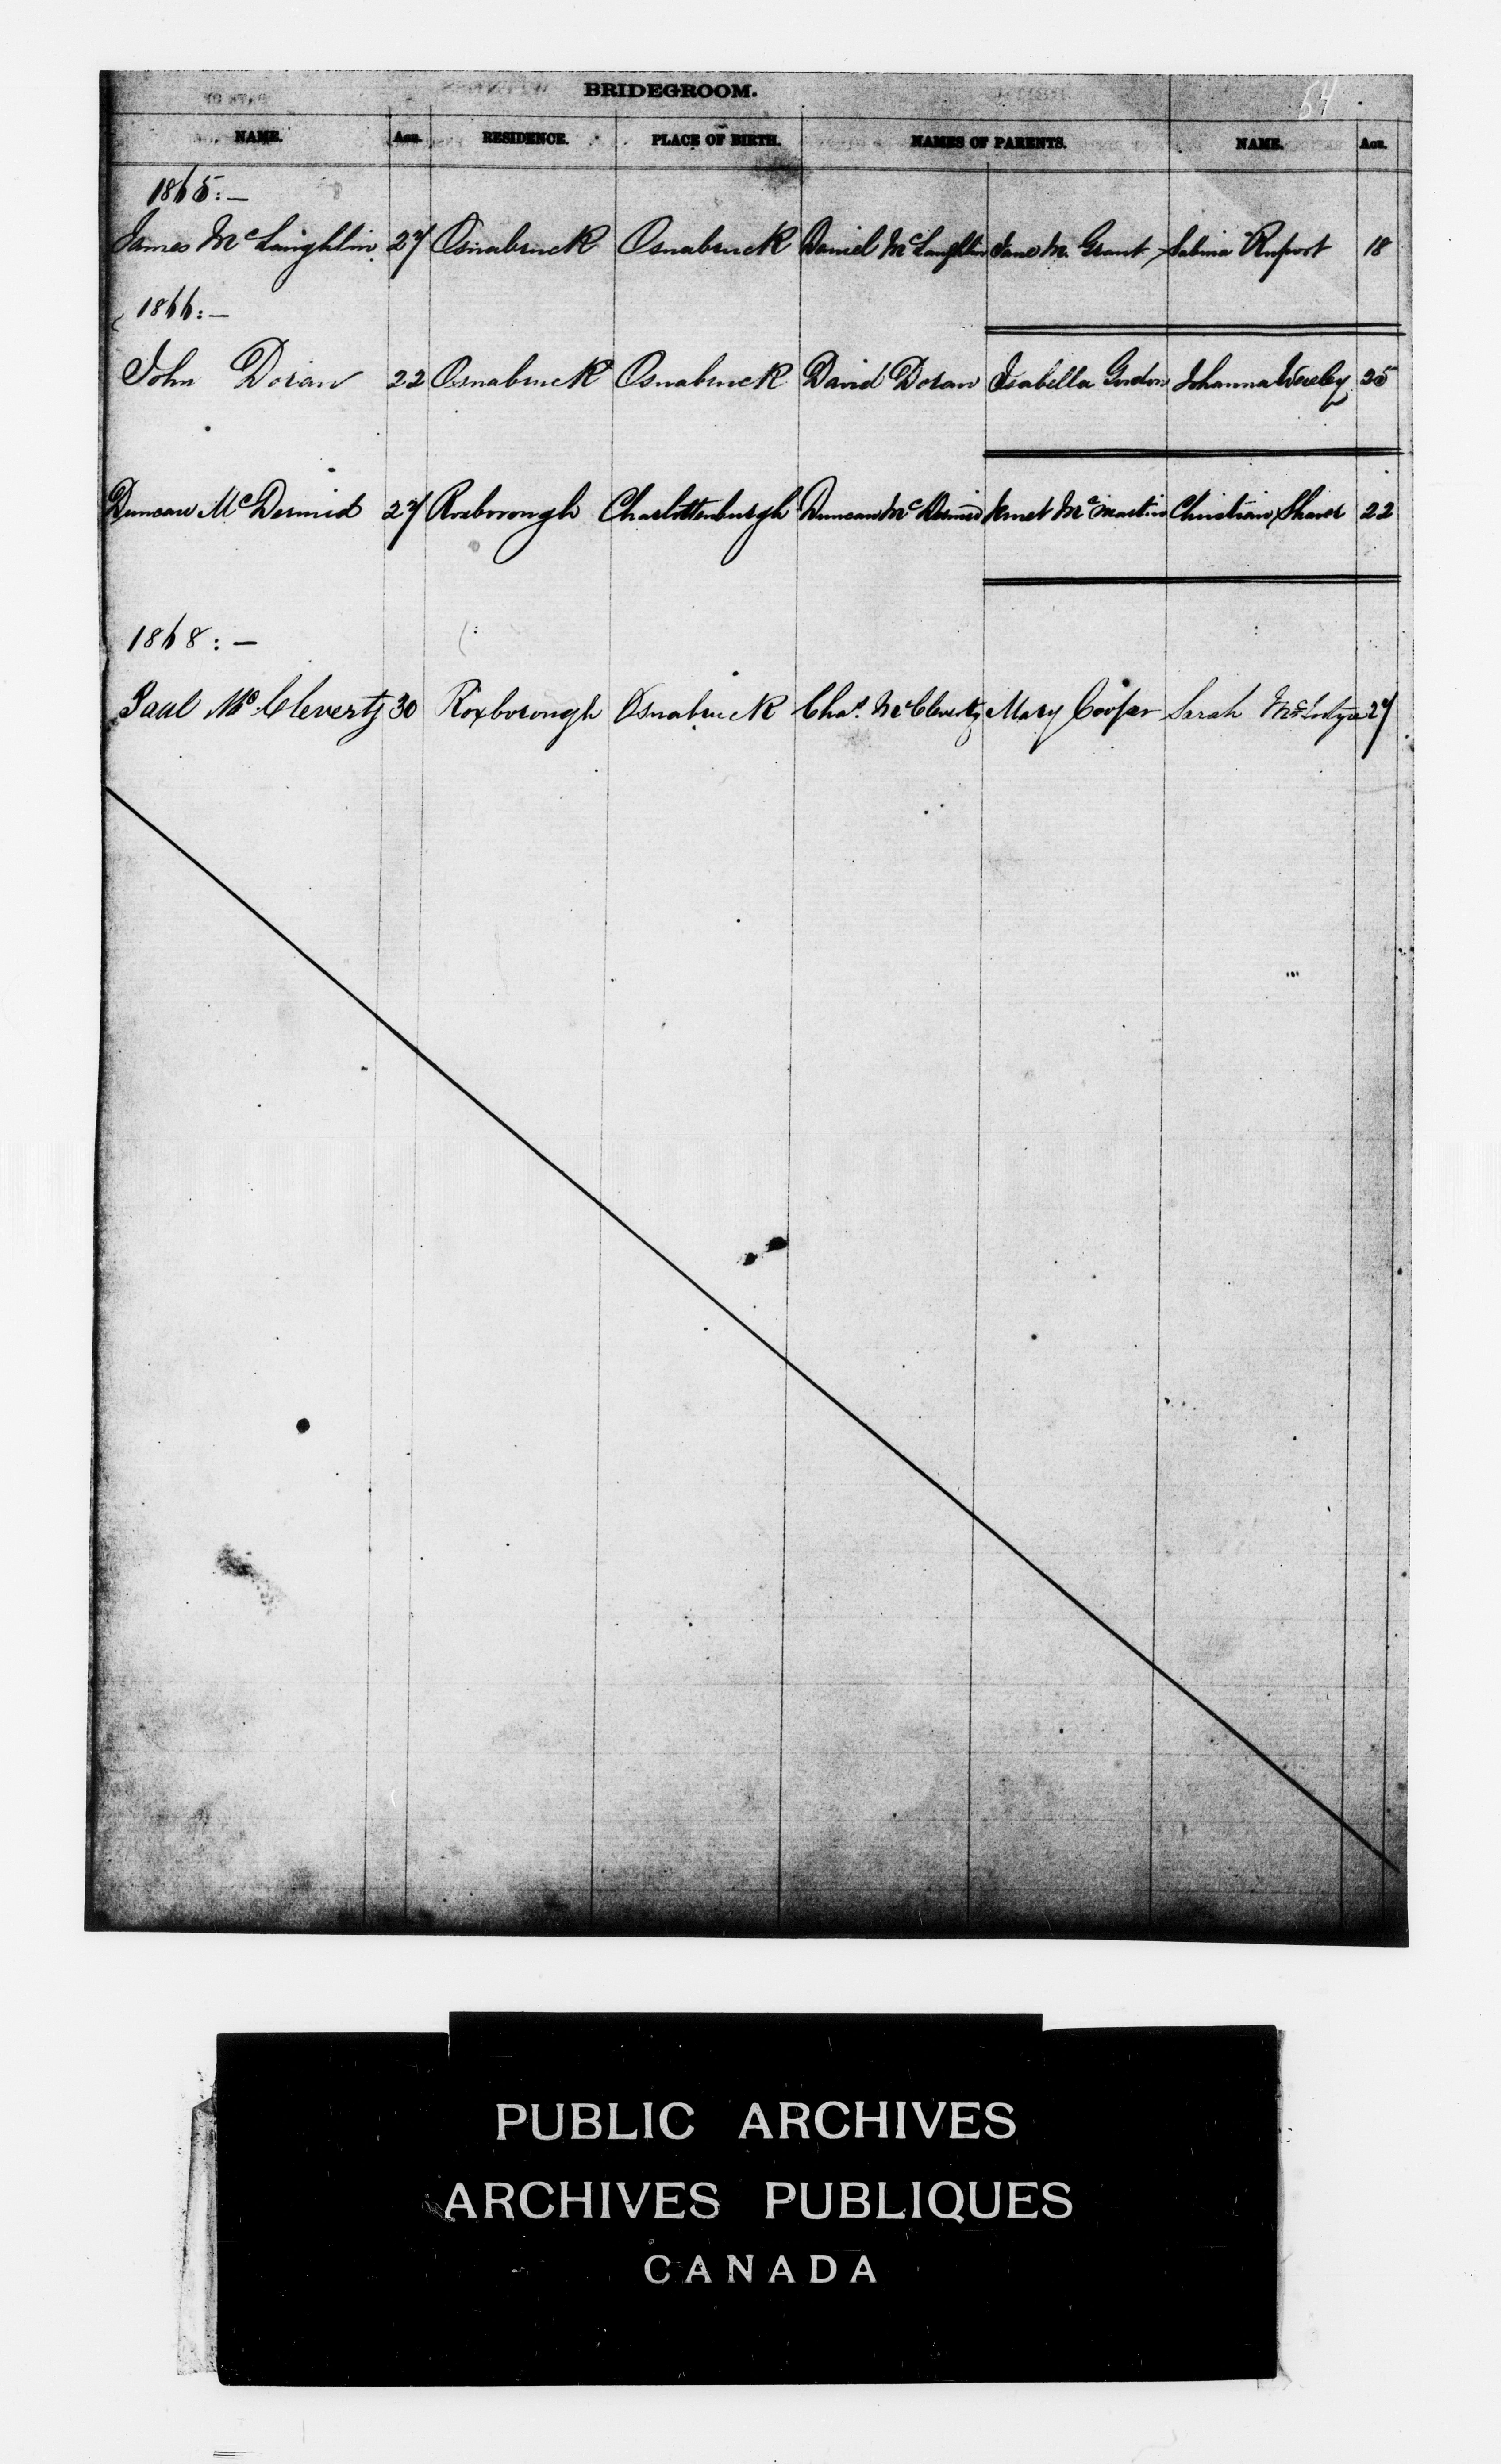 54
BRIDEGROOM.
NAME. AGE. RESIDENCE. PLACE OF BIRTH. NAMES OF PARENTS. NAME. AGE.
1865:—
James McLaughlin 27 Osnabruck Osnabruck Daniel McLaughlin Jane M. Grant Sabina Rupert 18
1866:—
John Doran 22 Osnabruck Osnabruck David Doran Isabella Gordon Johanna Wereley 25
Duncan McDermid 27 Roxborough Charlottenburgh Duncan McDermid Janet McMartin Christian Shaver 22
1868:—
Paul McClevertz 30 Roxborough Osnabruck Chas. McClevertz Mary Cooper Sarah McIntyre 27
PUBLIC ARCHIVES
ARCHIVES PUBLIQUES
CANADA